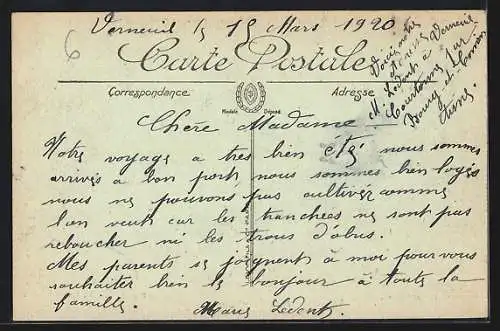 6
Verneuil le 15 Mars 1920
Carte Postale
Correspondance
Adresse
Modèle Déposé
Voici notre
Ledent à Verneuil
Courtonne sur
Bourg et Comin
Aisne
Chère Madame
Notre voyage a tres bien été nous sommes
arrivés a bon port, nous sommes bien logés
nous ne pouvons pas cultivér comme
l'on veut car les tranchees ne sont pas
reboucher ni les trous d'obus.
Mes parents se joignent a moi pour vous
souhaiter bien le bonjour à toute la
famille.
Marie Ledent